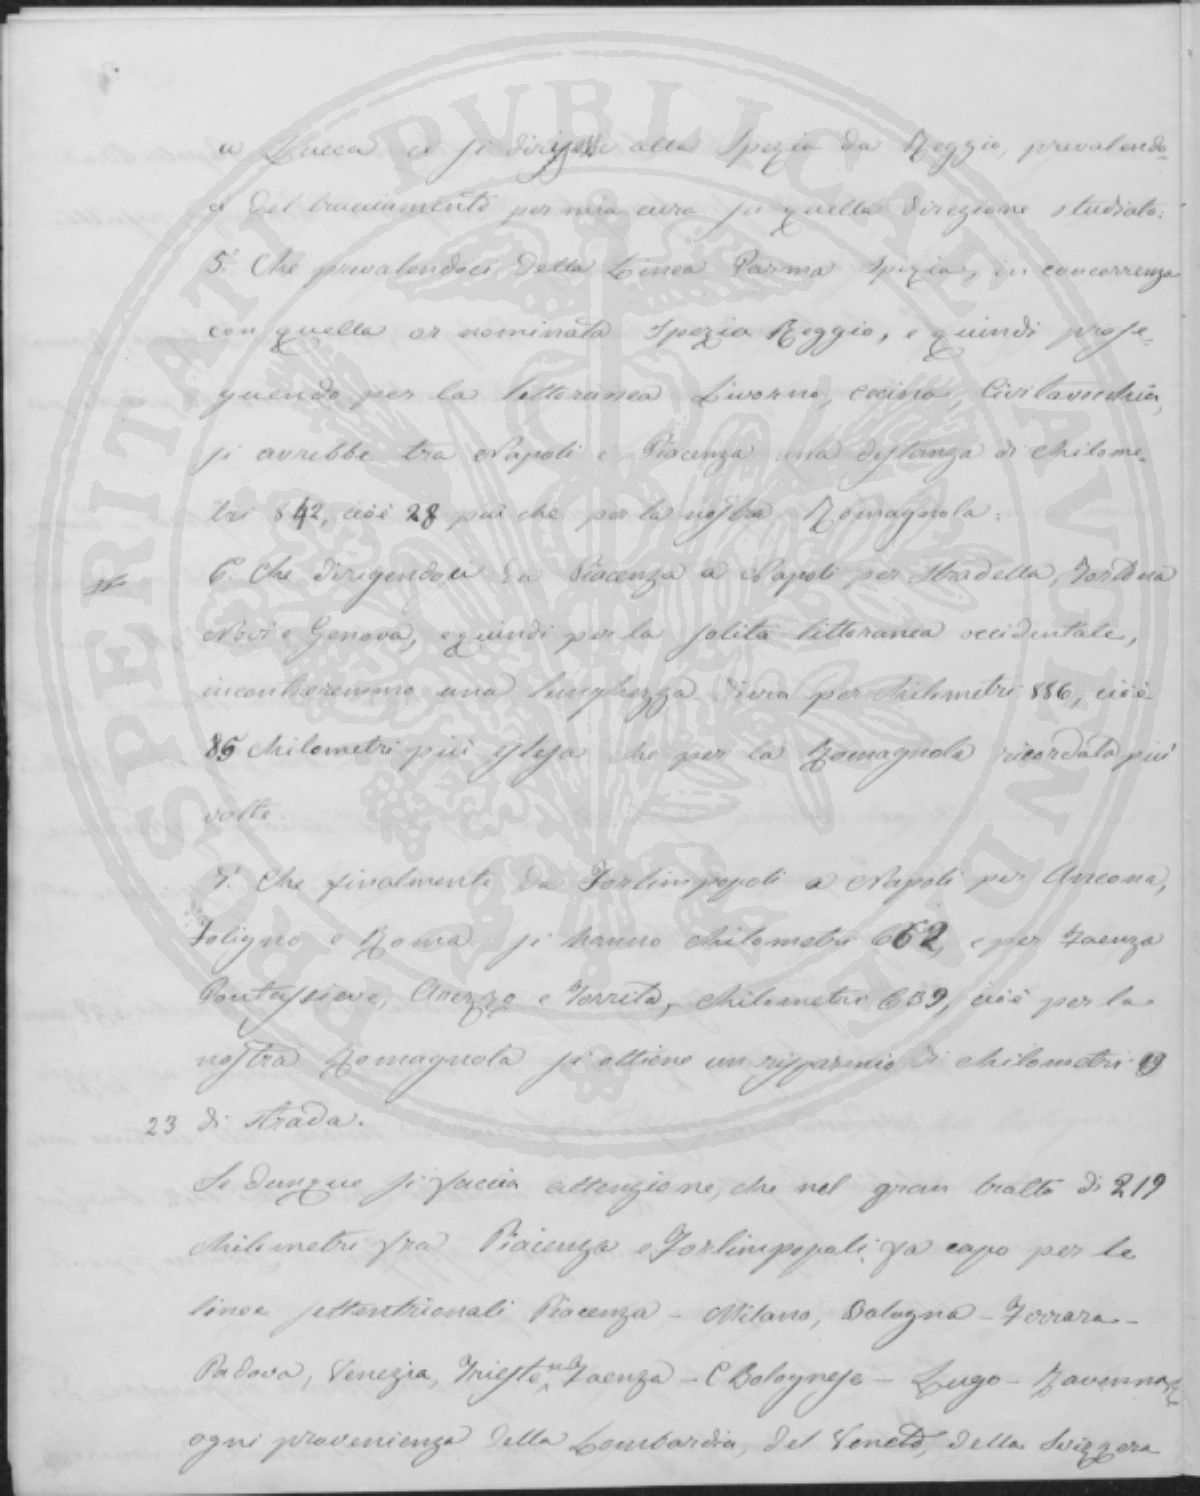 a Lucca e si dirigesse alla Spezia da Reggio, prevalendo=
ci del tracciamento per mia cura in quella direzione studiato:
5.° Che prevalendoci della Linea Parma Spezia, in concorrenza
con quella or nominata Spezia Reggio, e quindi prose=
guendo per la littoranea Livorno, Cecina, Civitavecchia,
si avrebbe tra Napoli e Piacenza una distanza di chilome=
tri 842, cioè 28 più che per la nostra Romagnola:
6.° Che dirigendoci da Piacenza a Napoli per Stradella, Tortona
Novi e Genova, e quindi per la solita littoranea occidentale,
incontreremmo una lunghezza di via per chilometri 886, cioè
85 chilometri più estesa che per la Romagnola ricordata più
volte.
7.° Che finalmente da Forlimpopoli a Napoli per Ancona,
Foligno e Roma si hanno chilometri 662, e per Faenza
Pontassieve, Arezzo e Torrita, chilometri 639, cioè per la
nostra Romagnola si ottiene un risparmio di chilometri
23 di strada.
Se dunque si faccia attenzione, che nel gran tratto di 219
chilometri fra Piacenza e Forlimpopoli, fa capo per le
linee settentrionali Piacenza - Milano, Bologna - Ferrara -
Padova, Venezia, Trieste, Faenza - Bolognese - Lugo - Ravenna
ogni provenienza della Lombardia, del Veneto, della Svizzera
PROSPERITATI PVBLICAE AVGENDAE